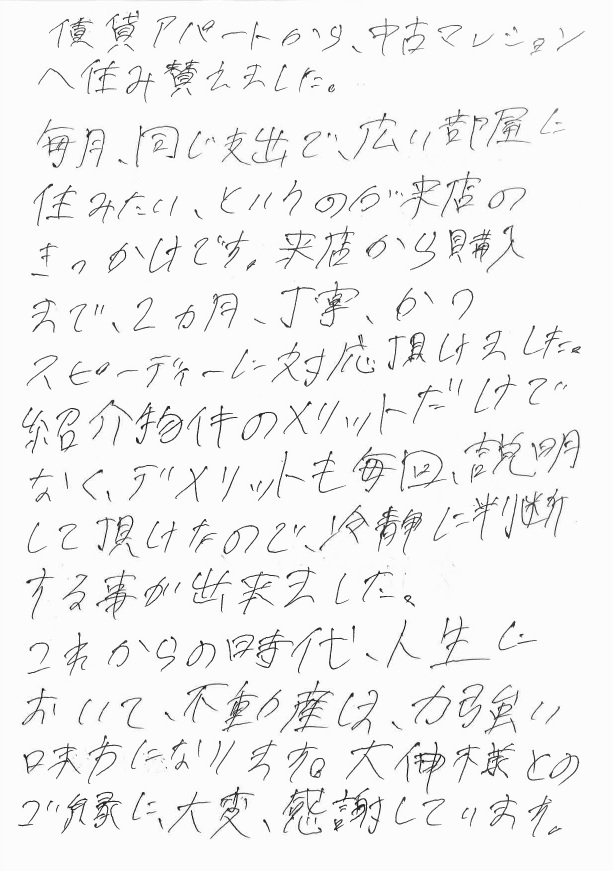 賃貸アパートから、中古マンション
へ住み替えました。
毎月、同じ支出で、広い部屋に
住みたい、というのが来店の
きっかけです。来店から購入
まで、2カ月、丁寧、かつ
スピーディーに対応頂けました。
紹介物件のメリットだけで
なく、デメリットも毎回、説明
して頂けたので、冷静に判断
する事が出来ました。
これからの時代、人生に
おいて、不動産は、力強い
味方になります。大伸様との
ご縁に、大変、感謝しています。